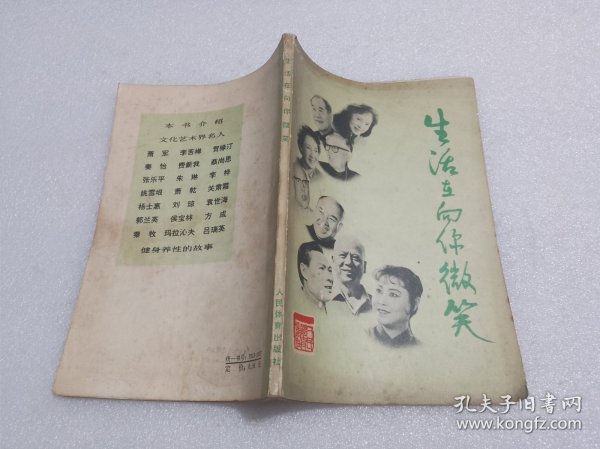 本书介绍
文化艺术界名人
萧军 李苦禅 贺绿汀
秦怡 费新我 蔡尚思
张乐平 朱琳 李梓
姚雪垠 萧乾 关肃霜
杨士惠 刘琼 袁世海
郭兰英 侯宝林 方成
秦牧 玛拉沁夫 吕瑞英
健身养性的故事
统一书号:
定价:
生活在向你微笑
人民体育出版社
生活在向你微笑
孔夫子旧书网
www.kongfz.com